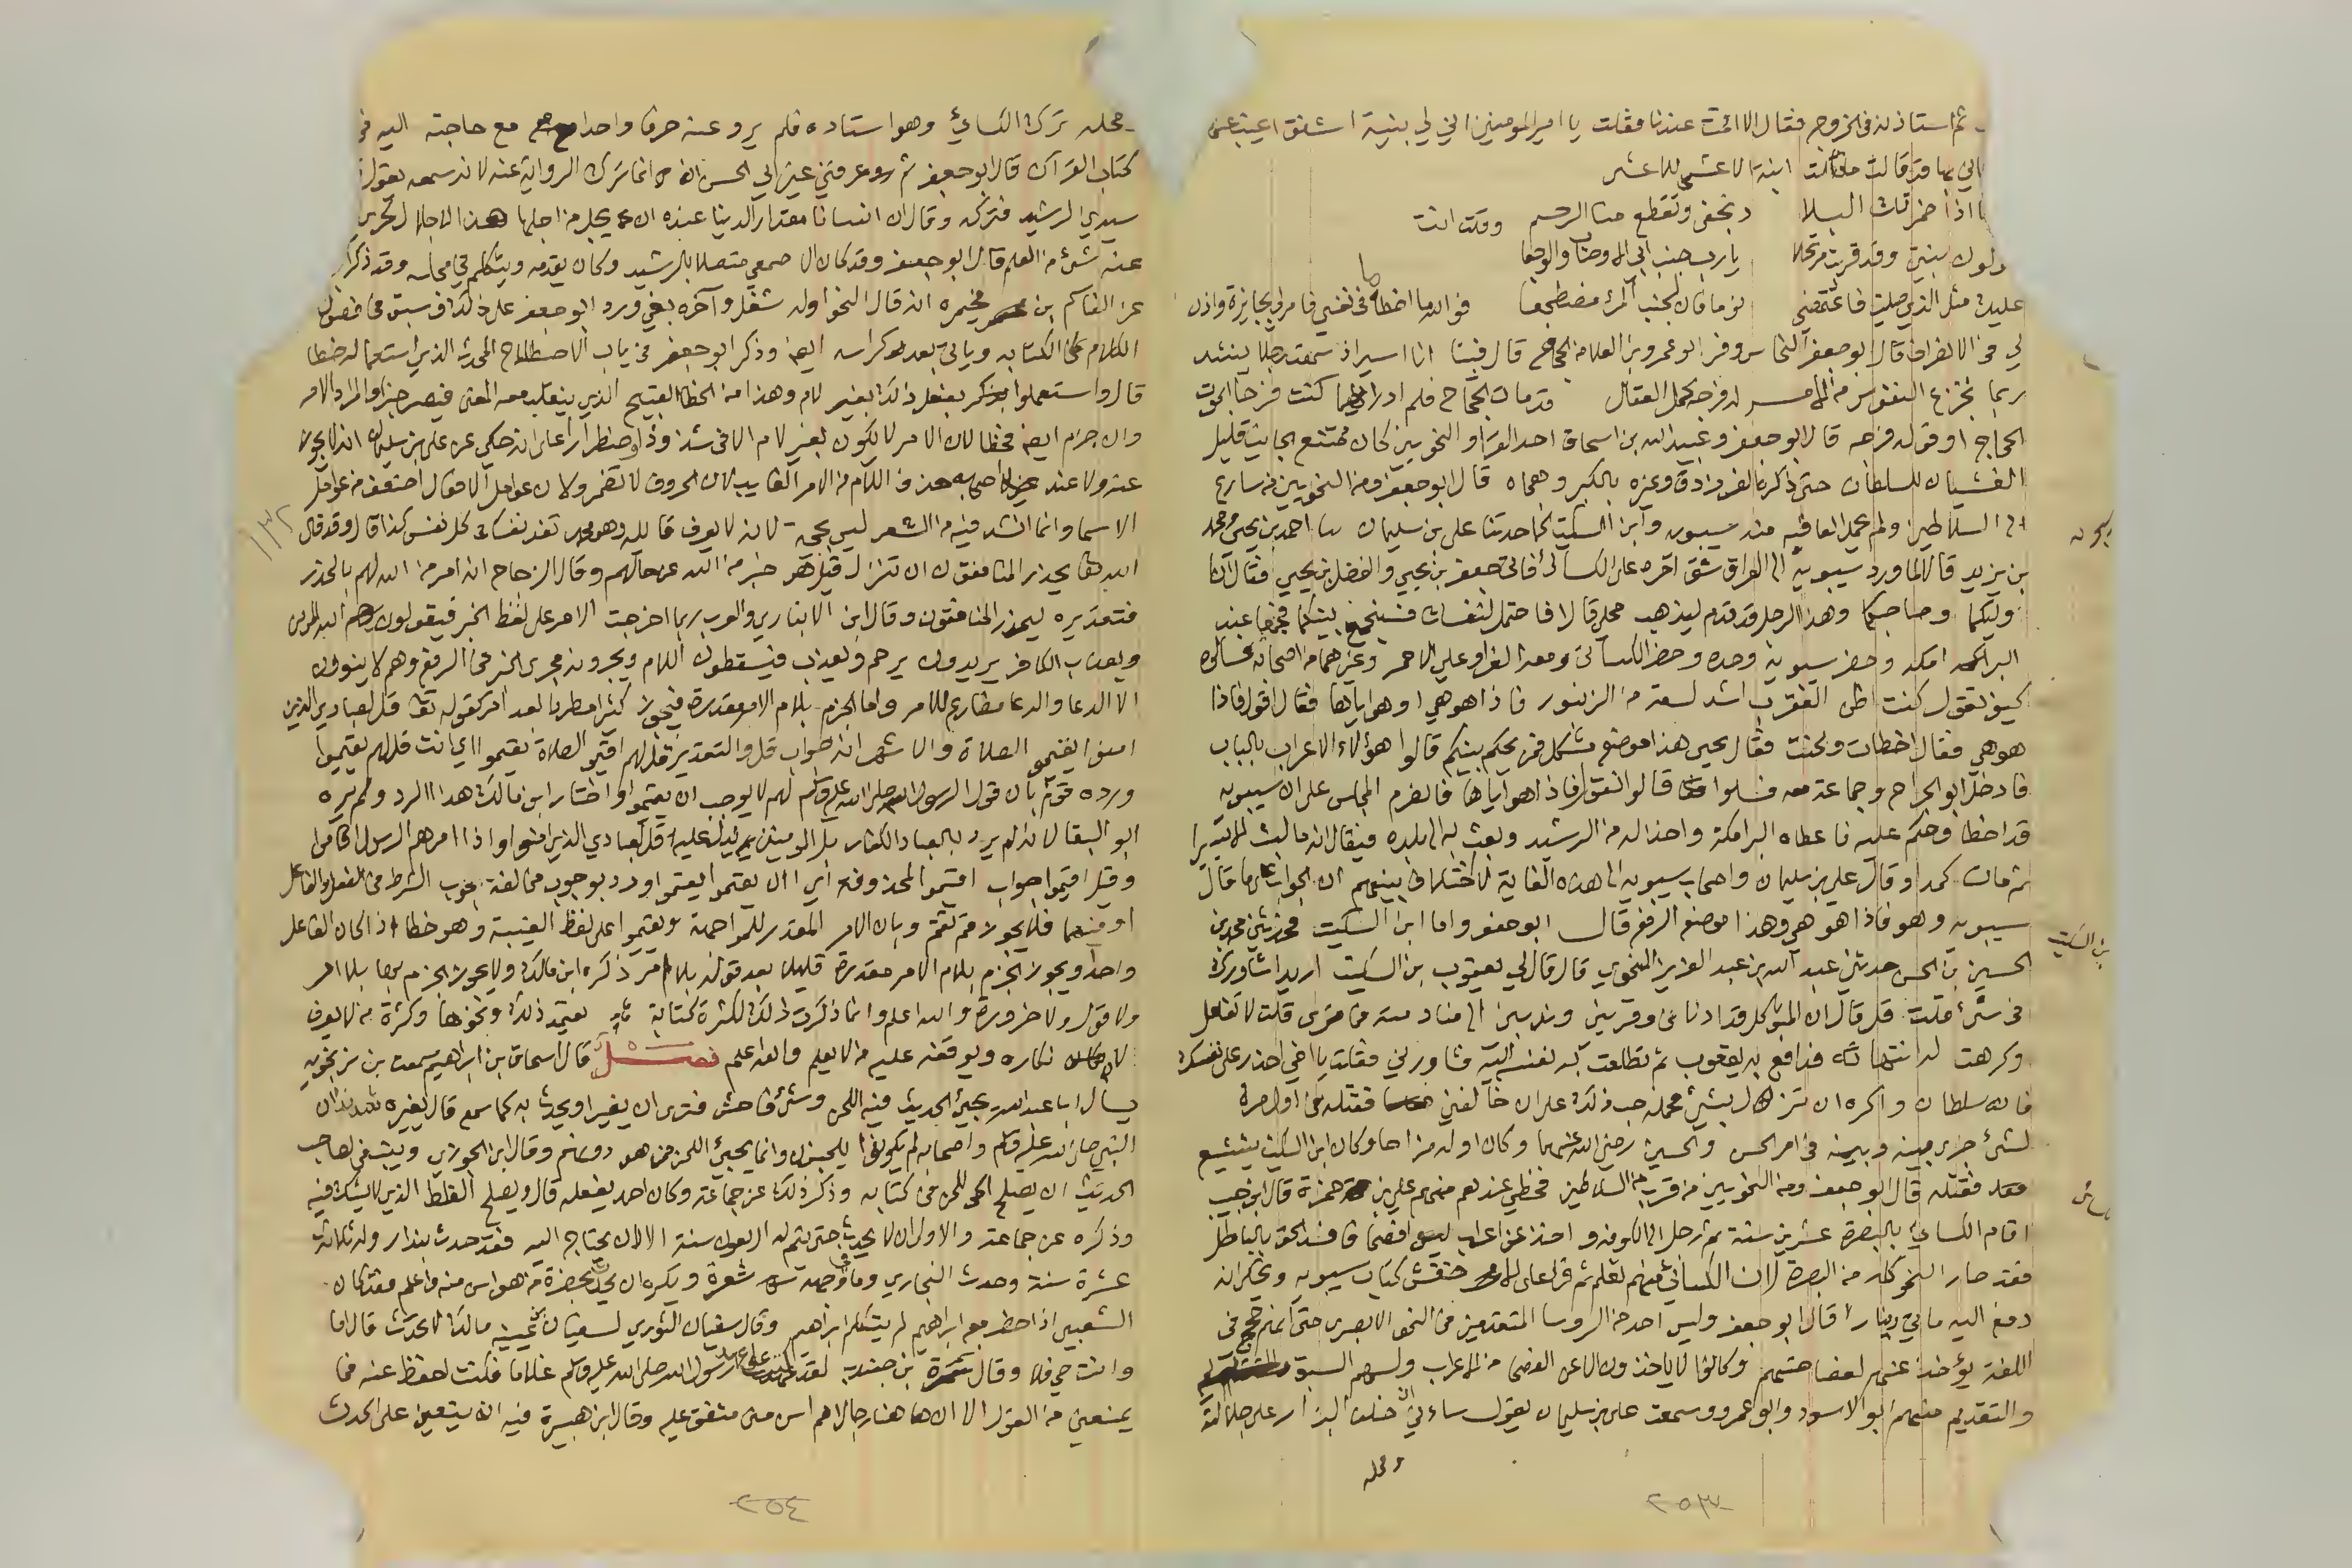 ثم استاذنه في الخروج فقال الا اقمت عندنا فقلت يا امير المومنين اني لي بنية اشفق
قالت ابنة الاعشى للاعشى
اذا اضمرتك البلا د نجفى وتقطع منا الرحم وقلت انت
بنتي وقد قربت مرتحلا يارب جنب ابي الاوصاب والوجعا
عليك مثل الذي صليت فاغتمضي نوما فان لجنب المرء مضطجعا فوالله ما اخطا في نفسي فامر لي بجايزة واذن
لي في الانصراف قال ابو جعفر النحاس وفر ابو عمرو بن العلا من الحجاج قال فبينا انا اسير اذ سمعت رجلا ينشد
ربما تجزع النفوس من الامر له فرجة كحل العقال قد مات الحجاج فلم ادر ايهما كنت افرح ابموت
الحجاج او قوله فرجه قال ابو جعفر وعبد الله بن اسحاق احد القراء والنحويين كان ممتنع الجانب قليل
الغشيان للسلطان حتى ذكره الفرزدق وعيره بالكبر وهجاه قال ابو جعفر ومن النحويين من سارع
الى السلاطين ولم يحمد العاقبة منه سيبويه وابن السكيت كما حدثنا علي بن سليمان ثنا احمد بن يحيى ومحمد
بن يزيد قالا لما ورد سيبويه الى العراق شق امره على الكسائي فاتى جعفر بن يحيى والفضل بن يحيى فقال انا
وليكما وصاحبكما وهذا الرجل قد قدم ليذهب محلي قالا فاحتمل لنفسك فسنجمع بينكما فجمعا عند
البرامكة وحضر سيبويه وحده وحضر الكسائي ومعه الفراء وعلي الاحمر وغيرهما من اصحابه فسالوه
كيف تقول كنت اظن العقرب اشد لسعة من الزنبور فاذا هو هي او هو اياها فقال اقول فاذا
هو هي فقال اخطات ولحنت فقال يحيى هذا موضع مشكل فمن يحكم بينكم قالوا هؤلاء الاعراب بالباب
فادخل ابو الجراح وجماعة معه فسلوا قالوا نقول فاذا هو اياها فانصرم المجلس على ان سيبويه
قد اخطا وحكم عليه فاعطاه البرامكة واخذ له من الرشيد وبعث به الى بلده فيقال انه ما لبث الا يسيرا
ثم مات كمدا وقال علي بن سليمان واصحاب سيبويه الى هذه الغاية لا اختلاف بينهم ان الجواب على ما قال
سيبويه وهو فاذا هو هي وهذا موضع الرفع قال ابو جعفر واما ابن السكيت فحدثني محمد بن
الحسين بن الحسن حدثني عبد الله بن عبد العزيز النحوي قال قال لي يعقوب بن السكيت اريد اشاورك
في شي قلت قل قال ان المتوكل قد ادناني وقربني وندبني الى منادمته فما ترى قلت لا تفعل
وكرهت له فدافع به يعقوب ثم تطلعت نفسه اليه فشاورني فقلت يا اخي احذر على نفسك
فانه سلطان واكره ان تزل بشي فحمله حب ذلك على ان خالفني فقتله في اول مرة
لشي جرى بينه وبينه في امر الحسن والحسين رضي الله عنهما وكان اوله مزاحا وكان ابن السكيت يتشيع
فقتله قال ابو جعفر ومن النحويين من قرب من السلاطين فحظي عندهم منهم علي بن حمزة قال ابن حبيب
اقام الكسائي بالبصرة عشرين سنة ثم رحل الى الكوفه واخذ عن اعراب ليسوا فصحا فافسد الحق بالباطل
فقد صار النحو كله من البصرة لان الكسائي منهم تعلم ثم قرا على الاخفش كتاب سيبويه ويحكى انه
دفع اليه مايتي دينارا قال ابو جعفر وليس احد من الروسا المتقدمين في النحو الا بصري حتى انهم حجج في
اللغة يؤخذ عنهم لفصاحتهم وكانوا لا ياخذون الا عن الفصحا من الاعراب ولهم السبق
والتقديم منهم ابو الاسود وابو عمرو وسمعت علي بن سليمان يقول ساءني ان خلف البزار على جلالته
ومحله
٢٥٣
ومحله ترك الكسائي وهو استاده فلم يرو عنه حرفا واحدا مع حاجته اليه في
كتاب القراات قال ابو جعفر ثم عرفني غير ابي الحسن انه انما ترك الرواية عنه لانه سمعه يقول
سيدي الرشيد فتركه وقال ان انسانا مقدار الدنيا عنده ان يجل من اجلها هذا الاجلال لحري
عنه شي من العلم قال ابو جعفر وقد كان الاصمعي متصلا بالرشيد وكان يقدمه ويتكلم في مجلسه وقد ذكر
عن القاسم بن مخيمره انه قال النحو اوله شغل وآخره بغي ورد ابو جعفر على ذلك وسبق في فصول
الكلام على الكتابه وياتي بعد نحو كراسه ايضا وذكر ابو جعفر في باب الاصطلاح المحدث الذي استعماله خطا
قال واستعملوا يفعل ذلك بغير لام وهذا من الخطا القبيح الذي ينقلب معه المعنى فيصير خبرا والمراد الامر
وان جزم ايضا فخطا لان الامر لا يكون بغير لام الا في شذوذ او اضطرار على انه حكي عن علي بن سليمان انه لا يجوز
عنه ولا عند اصحابه حذف اللام من الامر للغايب لان الحروف لا تضمر ولان عوامل الافعال اضعف من عوامل
الاسما وانما انشد فيه من الشعر ليس بحجة لانه لا يعرف قائله وهو محمد تفد نفسك كل نفس كذا قال وقد قال
الله تعالى يحذر المنافقون ان تنزل قيل هو خبر من الله عن حالهم وقال الزجاج انه امر من الله لهم بالحذر
فتقديره ليحذر المنافقون وقال ابن الانباري والعرب ربما اخرجت الامر على لفظ الخبر فيقولون يرحم الله المومن
ويعذب الكافر يريدون يرحم وليعذب فيسقطون اللام ويجرونه مجرى الخبر في الرفع وهم لا ينوون
الا الدعا والدعا مضارع للامر واما الجزم بلام الامر مقدرة فيجوز كثيرا مطردا بعد امر كقوله تعالى قل لعبادي الذين
امنوا يقيموا الصلاة والاشهر انه جواب قل والتقدير قل لهم اقيموا الصلاة يقيموا اي انت قل لهم يقيموا
ورده قوم بان قول الرسول صلى الله عليه وسلم لهم لا يوجب ان يقيموا واختار ابن مالك هذا الرد ولم يره
ابو البقا لانه لم يرد بالعباد الكفار بل المومنين يدل عليه قل لعبادي الذين امنوا واذا امرهم الرسول اقاموا
وقيل اقيموا جواب اقيموا المحذوفة اي ان يقيموا يقيموا ورد بوجوب مخالفة جواب الشرط في الفعل والفاعل
او فيهما فلا يجوز قم تقم وبان الامر المقدر للمواجهة ويقيموا على لفظ الغيبة وهو خطا اذا كان الفاعل
واحدا ويجوز الجزم بلام الامر مقدرة قليلا بعد قول بلا امر ذكره ابن مالك ولا يجوز الجزم بها بلا امر
ولا قول ولا ضرورة والله اعلم وانما ذكرت ذلك لكثرة كتابة يعتمد ذلك ونحوها وكثرة من لا يعرف
انكاره ويوقفه عليه من لا يعلم والله اعلم فصل قال اسحاق بن ابراهيم سمعت بن زنجويه
يسال ابا عبد الله يجيئ الحديث فيه اللحن وشي فاحش فترى ان يغير او يحدث به كما سمع قال يغيره شديدا ان
النبي صلى الله عليه وسلم واصحابه لم يكونوا يلحنون وانما يجيئ اللحن ممن هو دونهم وقال ابن الجوزي وينبغي لصاحب
الحديث ان يصلح اللحن في كتابه وذكر ذلك عن جماعة وكان احمد يفعله قال ويصلح الغلط الذي لا يشك فيه
وذكره عن جماعة والاولى ان لا يحدث حتى يتم له اربعون سنة الا ان يحتاج اليه فقد حدث بندار وله ثلاثة
عشرة سنة وحدث البخاري وما في وجهه شعرة ويكره ان يحدث بحضرة من هو اسن منه واعلم فقد كان
الشعبي اذا حضر مع ابراهيم لم يتكلم ابراهيم وقال سفيان الثوري لسفيان بن عيينه مالك لا تحدث قال اما
وانت حي فلا وقال سمرة بن جندب لقد كنت على عهد رسول الله صلى الله عليه وسلم غلاما فكنت احفظ عنه فما
يمنعني من القول الا ان ها هنا رجالا هم اسن مني متفق عليه وقال ابن هبيرة فيه انه يتعين على الحدث
٢٥٤
١٣٢
بن السكيت